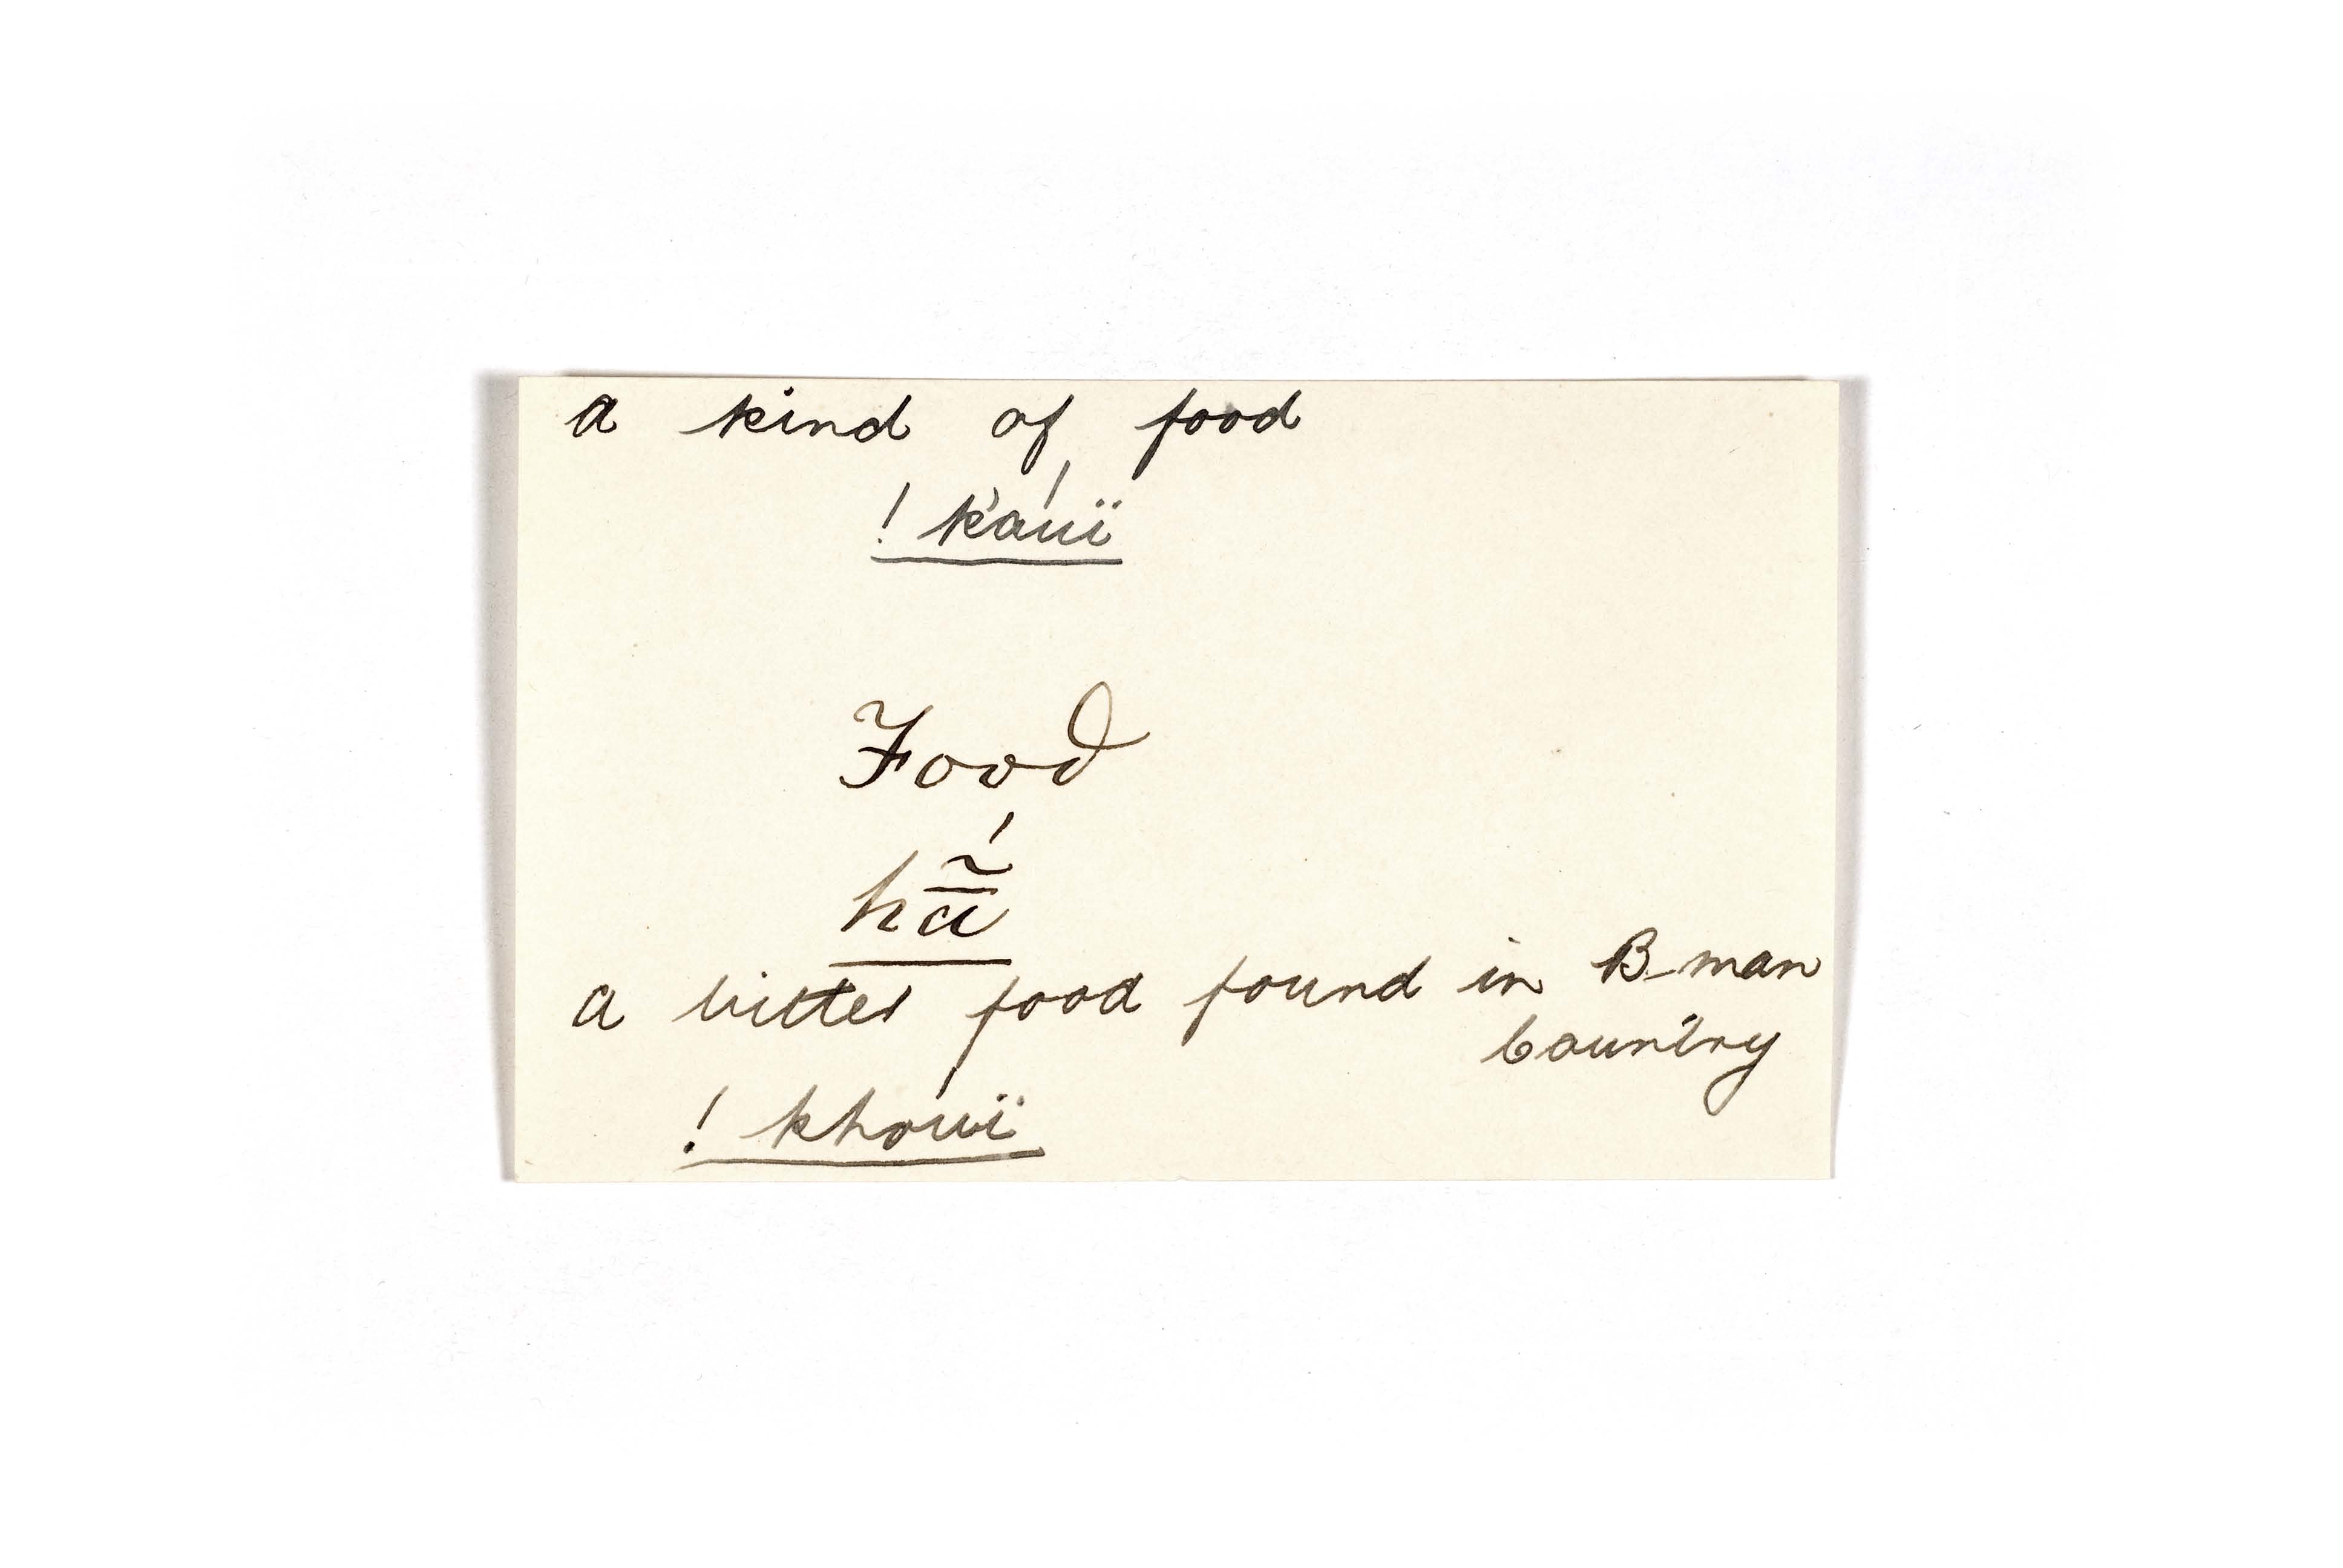 a kind of food
! k'aúï
Food
hā̃́
a bitter food found in B-man
Country
! khoúï